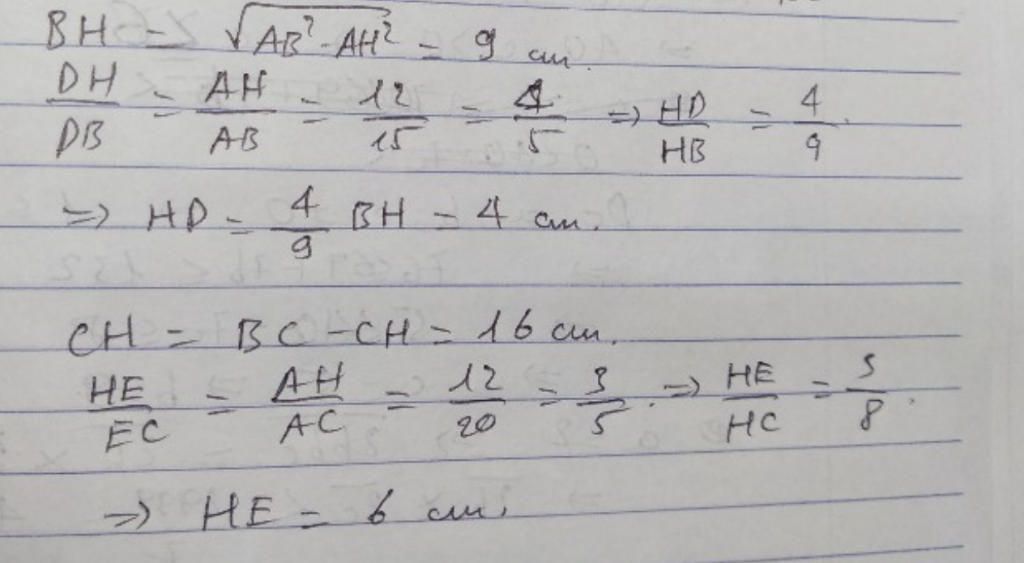 BH = √(AB² - AH²) = 9 cm.
DH/DB = AH/AB = 12/15 = 4/5 => HD/HB = 4/9.
=> HD = 4/9 BH = 4 cm.
CH = BC - CH = 16 cm.
HE/EC = AH/AC = 12/20 = 3/5. => HE/HC = 5/8.
=> HE = 6 cm.